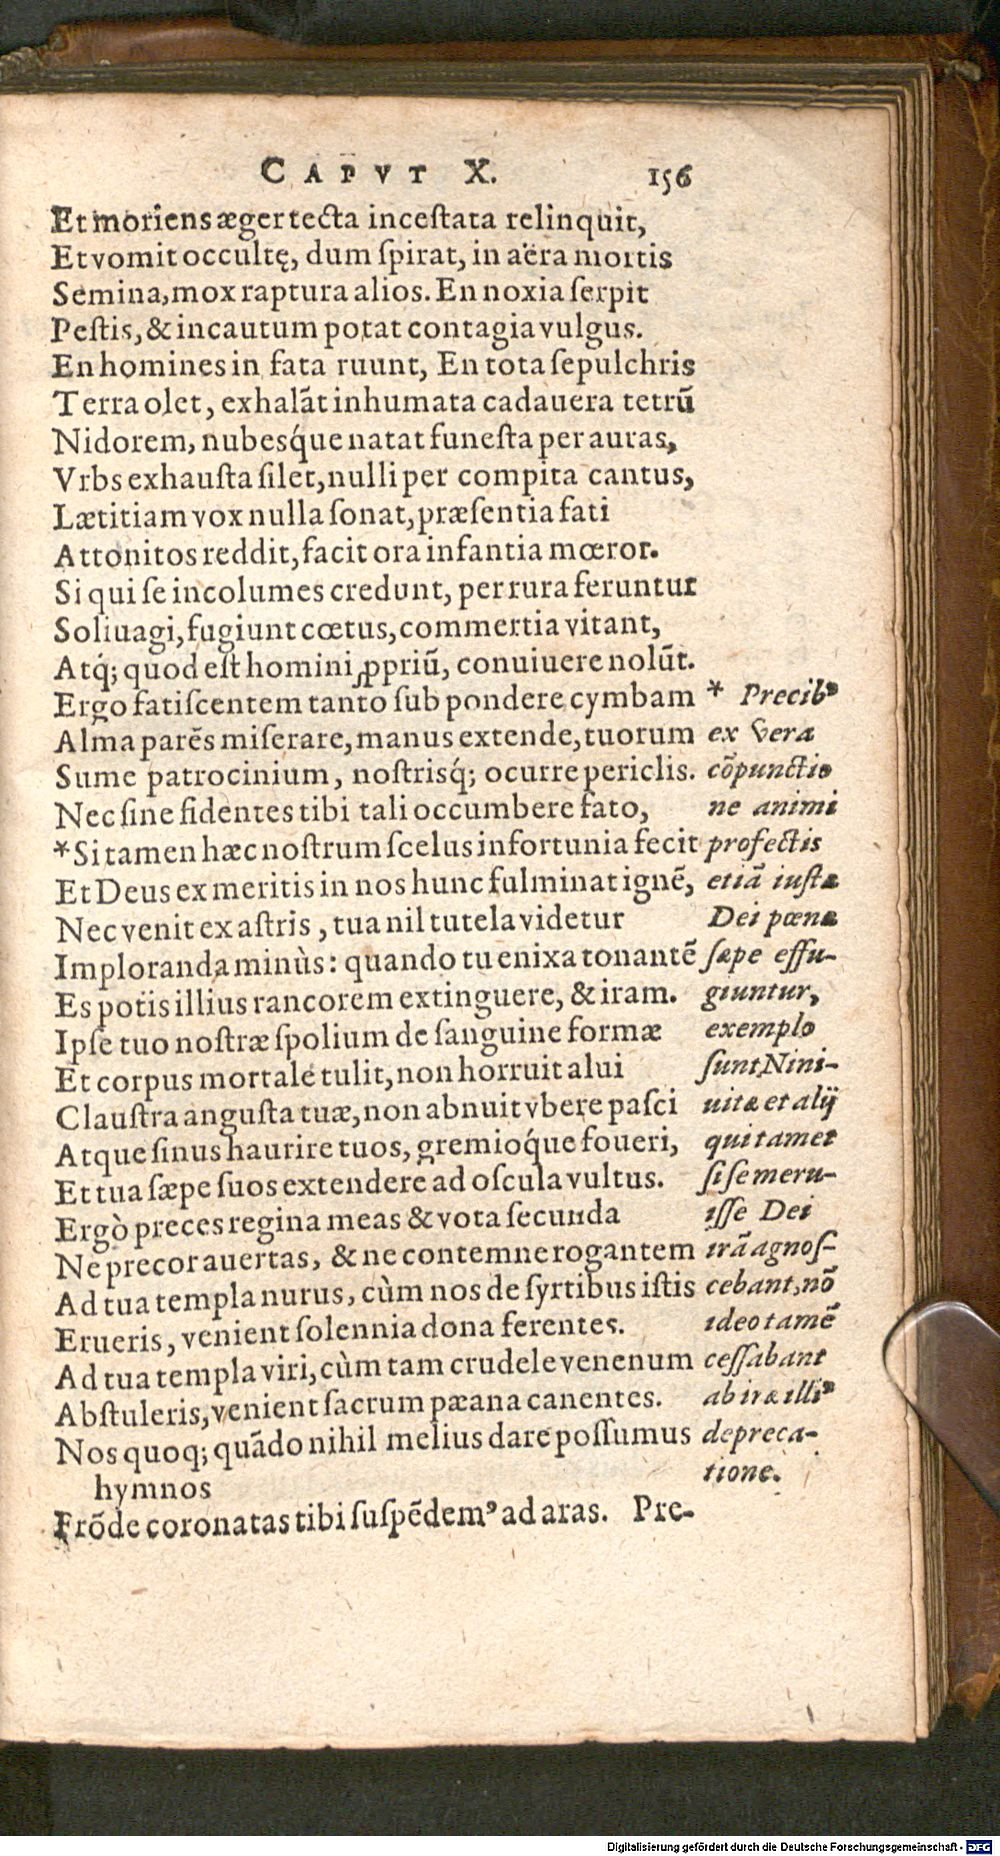 CAPVT X. 156
Et moriens æger tecta incestata relinquit,
Et vomit occultę, dum spirat, in aëra mortis
Semina, mox raptura alios. En noxia serpit
Pestis, & incautum potat contagia vulgus.
En homines in fata ruunt, En tota sepulchris
Terra olet, exhalāt inhumata cadauera tetrū
Nidorem, nubesq́ue natat funesta per auras,
Vrbs exhausta silet, nulli per compita cantus,
Lætitiam vox nulla sonat, præsentia fati
Attonitos reddit, facit ora infantia mœror.
Si qui se incolumes credunt, per rura feruntur
Soliuagi, fugiunt cœtus, commertia vitant,
Atq́; quod est homini ꝓpriū, conuiuere nolūt.
Ergo fatiscentem tanto sub pondere cymbam
Alma parēs miserare, manus extende, tuorum
Sume patrocinium, nostrisq́; ocurre periclis.
Nec sine fidentes tibi tali occumbere fato,
*Si tamen hæc nostrum scelus infortunia fecit
Et Deus ex meritis in nos hunc fulminat ignē,
Nec venit ex astris, tua nil tutela videtur
Imploranda minùs: quando tu enixa tonantē
Es potis illius rancorem extinguere, & iram.
Ipse tuo nostræ spolium de sanguine formæ
Et corpus mortale tulit, non horruit alui
Claustra angusta tuæ, non abnuit vbere pasci
Atque sinus haurire tuos, gremioq́ue foueri,
Et tua sæpe suos extendere ad oscula vultus.
Ergò preces regina meas & vota secunda
Ne precor auertas, & ne contemne rogantem
Ad tua templa nurus, cùm nos de syrtibus istis
Erueris, venient solennia dona ferentes.
Ad tua templa viri, cùm tam crudele venenum
Abstuleris, venient sacrum pæana canentes.
Nos quoq; quādo nihil melius dare possumus
hymnos
Frōde coronatas tibi suspēdemꝰ ad aras. Pre-
* Precibꝰ
ex vera
cōpunctio
ne animi
profectis
etiā iustæ
Dei pœnæ
sæpe effu-
giuntur,
exemplo
sunt Nini-
uitæ et alij
qui tamet
si se meru-
isse Dei
irā agnos-
cebant, nō
ideo tamē
cessabant
ab iræ illiꝰ
depreca-
tione.
Digitalisierung gefördert durch die Deutsche Forschungsgemeinschaft - DFG